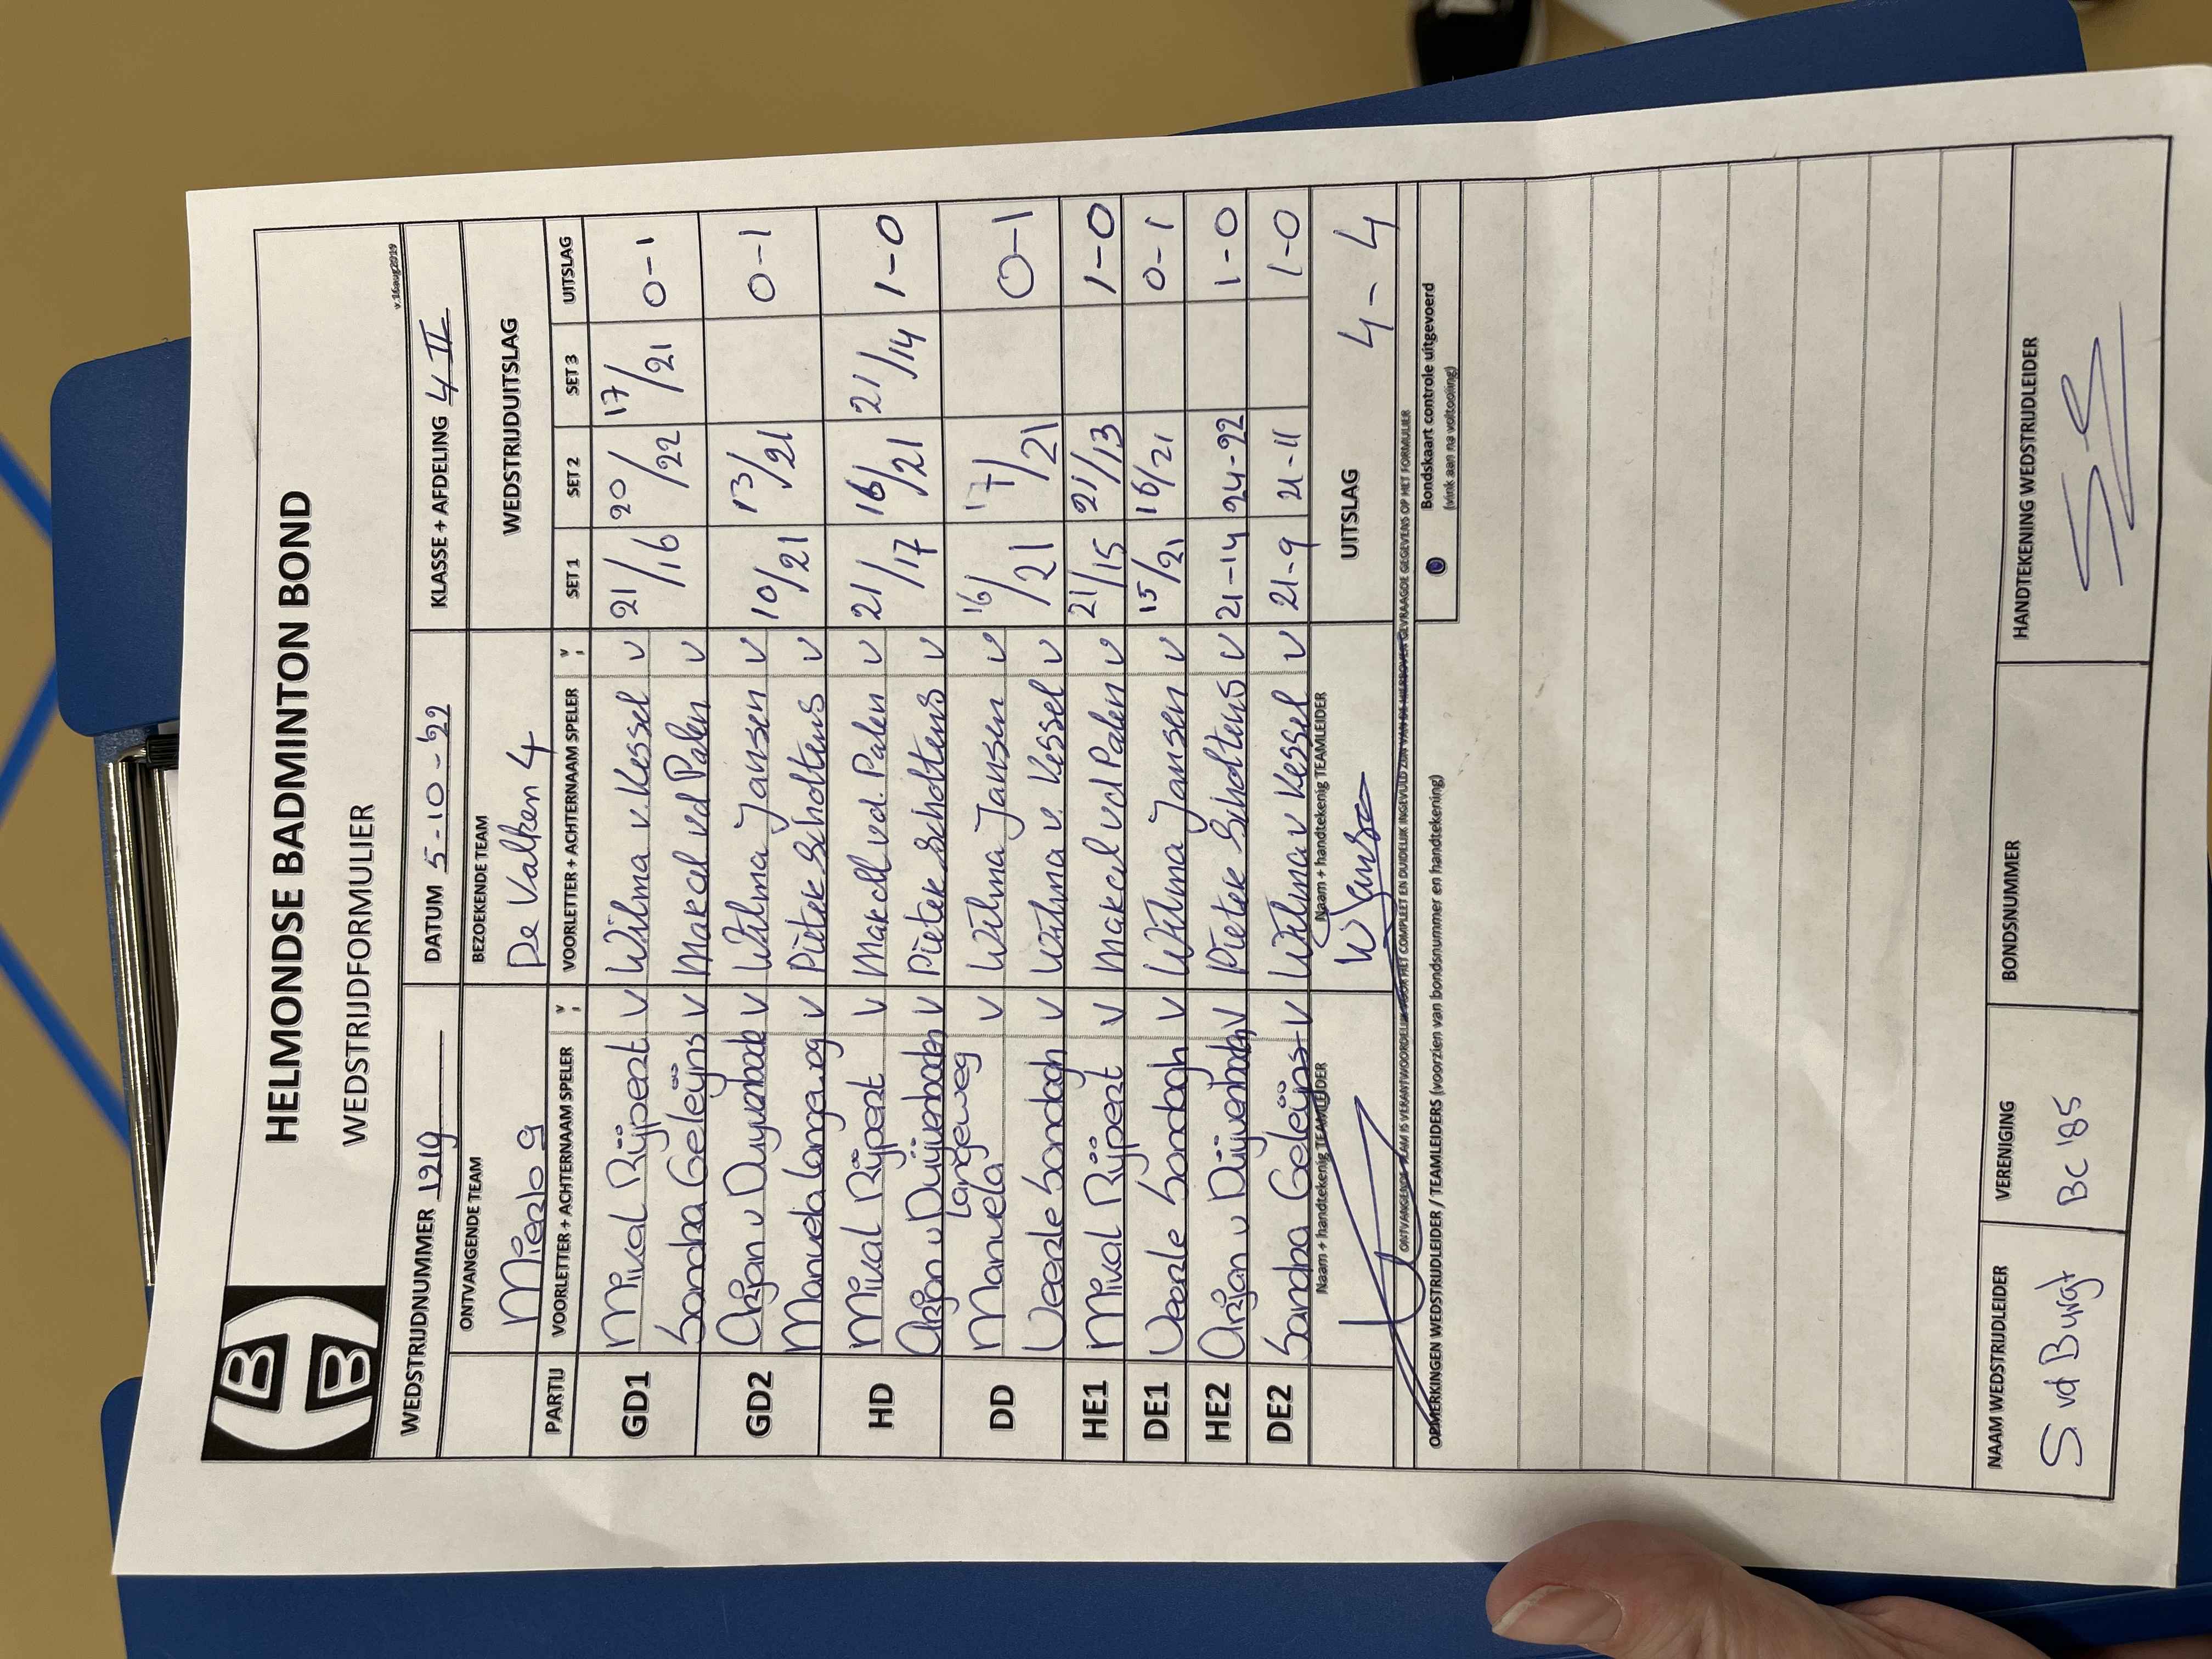 HELMONDSE BADMINTON BOND
WEDSTRIJDFORMULIER
v.16aug2019
WEDSTRIJDNUMMER 1219 DATUM 5-10-'22 KLASSE + AFDELING 4 II
ONTVANGENDE TEAM BEZOEKENDE TEAM WEDSTRIJDUITSLAG
Mierlo 9 De Valken 4
PARTIJ VOORLETTER + ACHTERNAAM SPELER v; VOORLETTER + ACHTERNAAM SPELER v; SET 1 SET 2 SET 3 UITSLAG
GD1 Mixal Rijpert V Wilma v. Kessel V 21/16 20/22 17/21 0-1
Sandra Geleijns V Makcel vd Palen V
GD2 Arjan v Duyvenbode V Wilma Jansen V 10/21 13/21 0-1
Manuela Langeweg V Pieter Scholtens V
HD Mixal Rijpert V Makcel vd. Palen V 21/17 16/21 21/14 1-0
Arjan v Duijvenboden V Pieter Scholtens V
DD Manuela Langeweg V Wilma Jansen V 16/21 17/21 0-1
Veerle Sandagh V Wilma v. Kessel V
HE1 Mixal Rijpert V Makcel vd Palen V 21/15 21/13 1-0
DE1 Veerle Sandagh V Wilma Jansen V 15/21 16/21 0-1
HE2 Arjan v Duijvenboden V Pieter Scholtens V 21-14 24-22 1-0
DE2 Sandra Geleijns V Wilma v Kessel V 21-9 21-11 1-0
Naam + handtekenig TEAMLEIDER Naam + handtekenig TEAMLEIDER UITSLAG 4-4
WJansen
ONTVANGENDE TEAM IS VERANTWOORDELIJK VOOR HET COMPLEET EN DUIDELIJK INGEVULD ZIJN VAN DE HIERBOVEN GEVRAAGDE GEGEVENS OP HET FORMULIER
OPMERKINGEN WEDSTRIJDLEIDER / TEAMLEIDERS (voorzien van bondsnummer en handtekening) Bondskaart controle uitgevoerd
(vink aan na voltooiing)
NAAM WEDSTRIJDLEIDER VERENIGING BONDSNUMMER HANDTEKENING WEDSTRIJDLEIDER
S vd Burgt BC '85